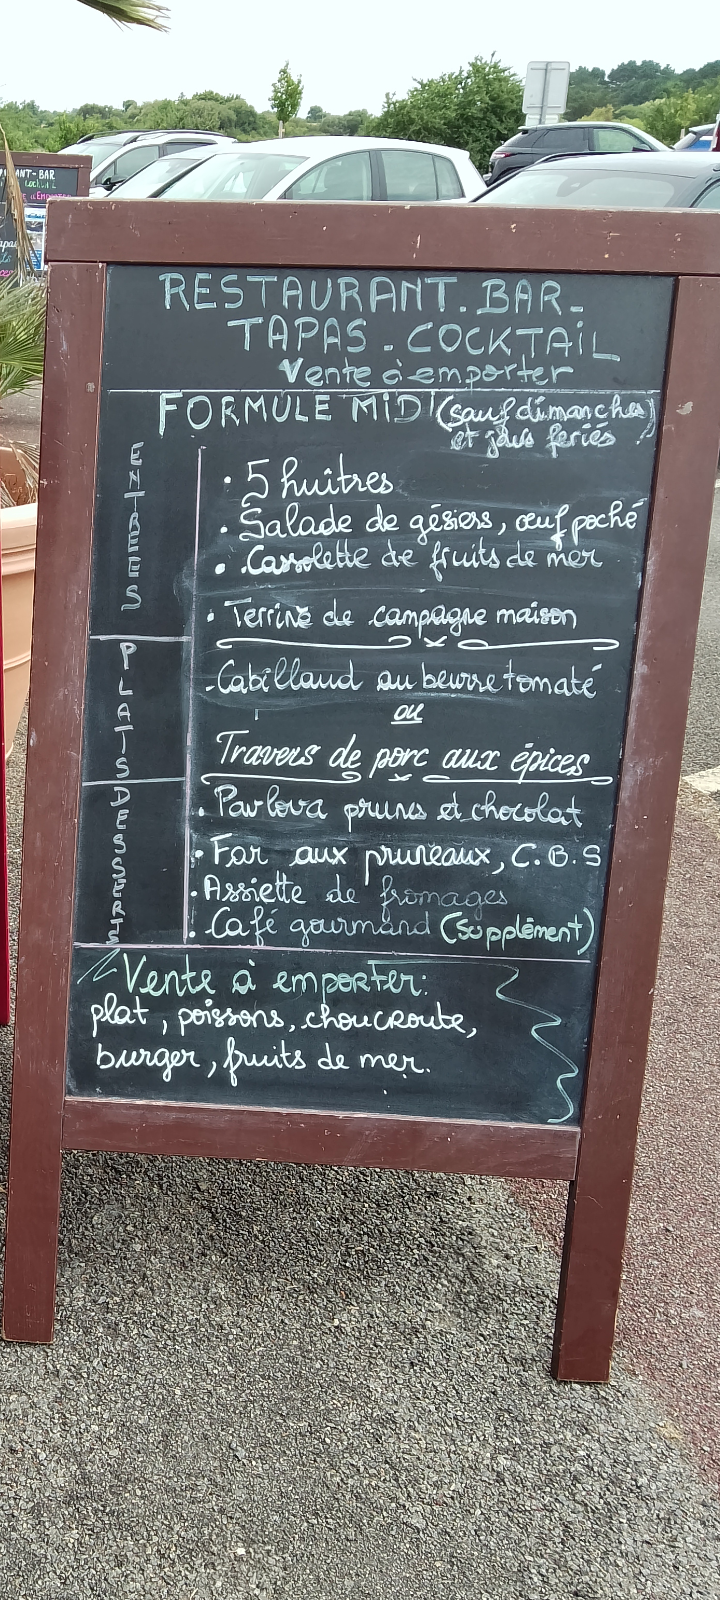 RESTAURANT. BAR-
TAPAS - COCKTAIL
Vente à emporter
FORMULE MIDI (sauf dimanches
et jours fériés)
ENTREES
. 5 huîtres
. Salade de gésiers, œuf poché
. Cassolette de fruits de mer
. Terrine de campagne maison
PLATS
. Cabillaud au beurre tomaté
ou
Travers de porc aux épices
DESSERTS
. Pavlova prunes et chocolat
. Far aux pruneaux, C.B.S
. Assiette de fromages
. Café gourmand (supplément)
Vente à emporter:
plat, poissons, choucroute,
burger, fruits de mer.
ANT-BAR